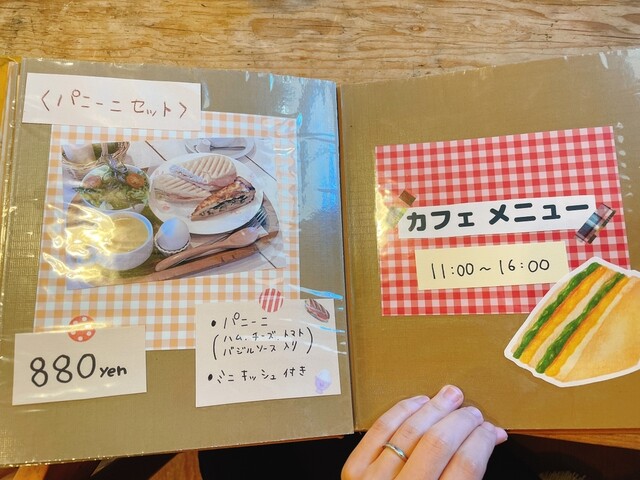 〈パニーニセット〉
880yen
・パニーニ
(ハム、チーズ、トマト
バジルソース入り)
・ミニキッシュ付き
カフェメニュー
11:00～16:00